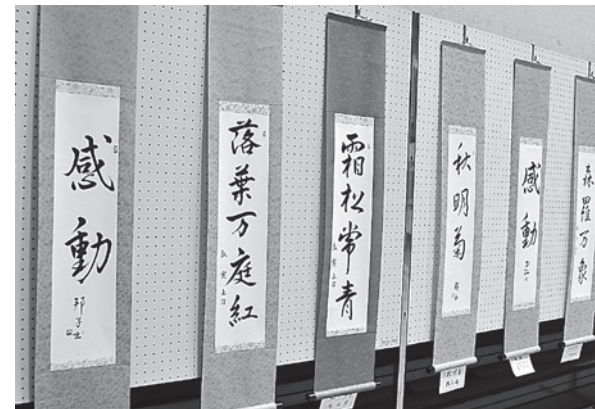 感動
邦子書
落葉万庭紅
霜松常青
秋明菊
感動
森羅万象